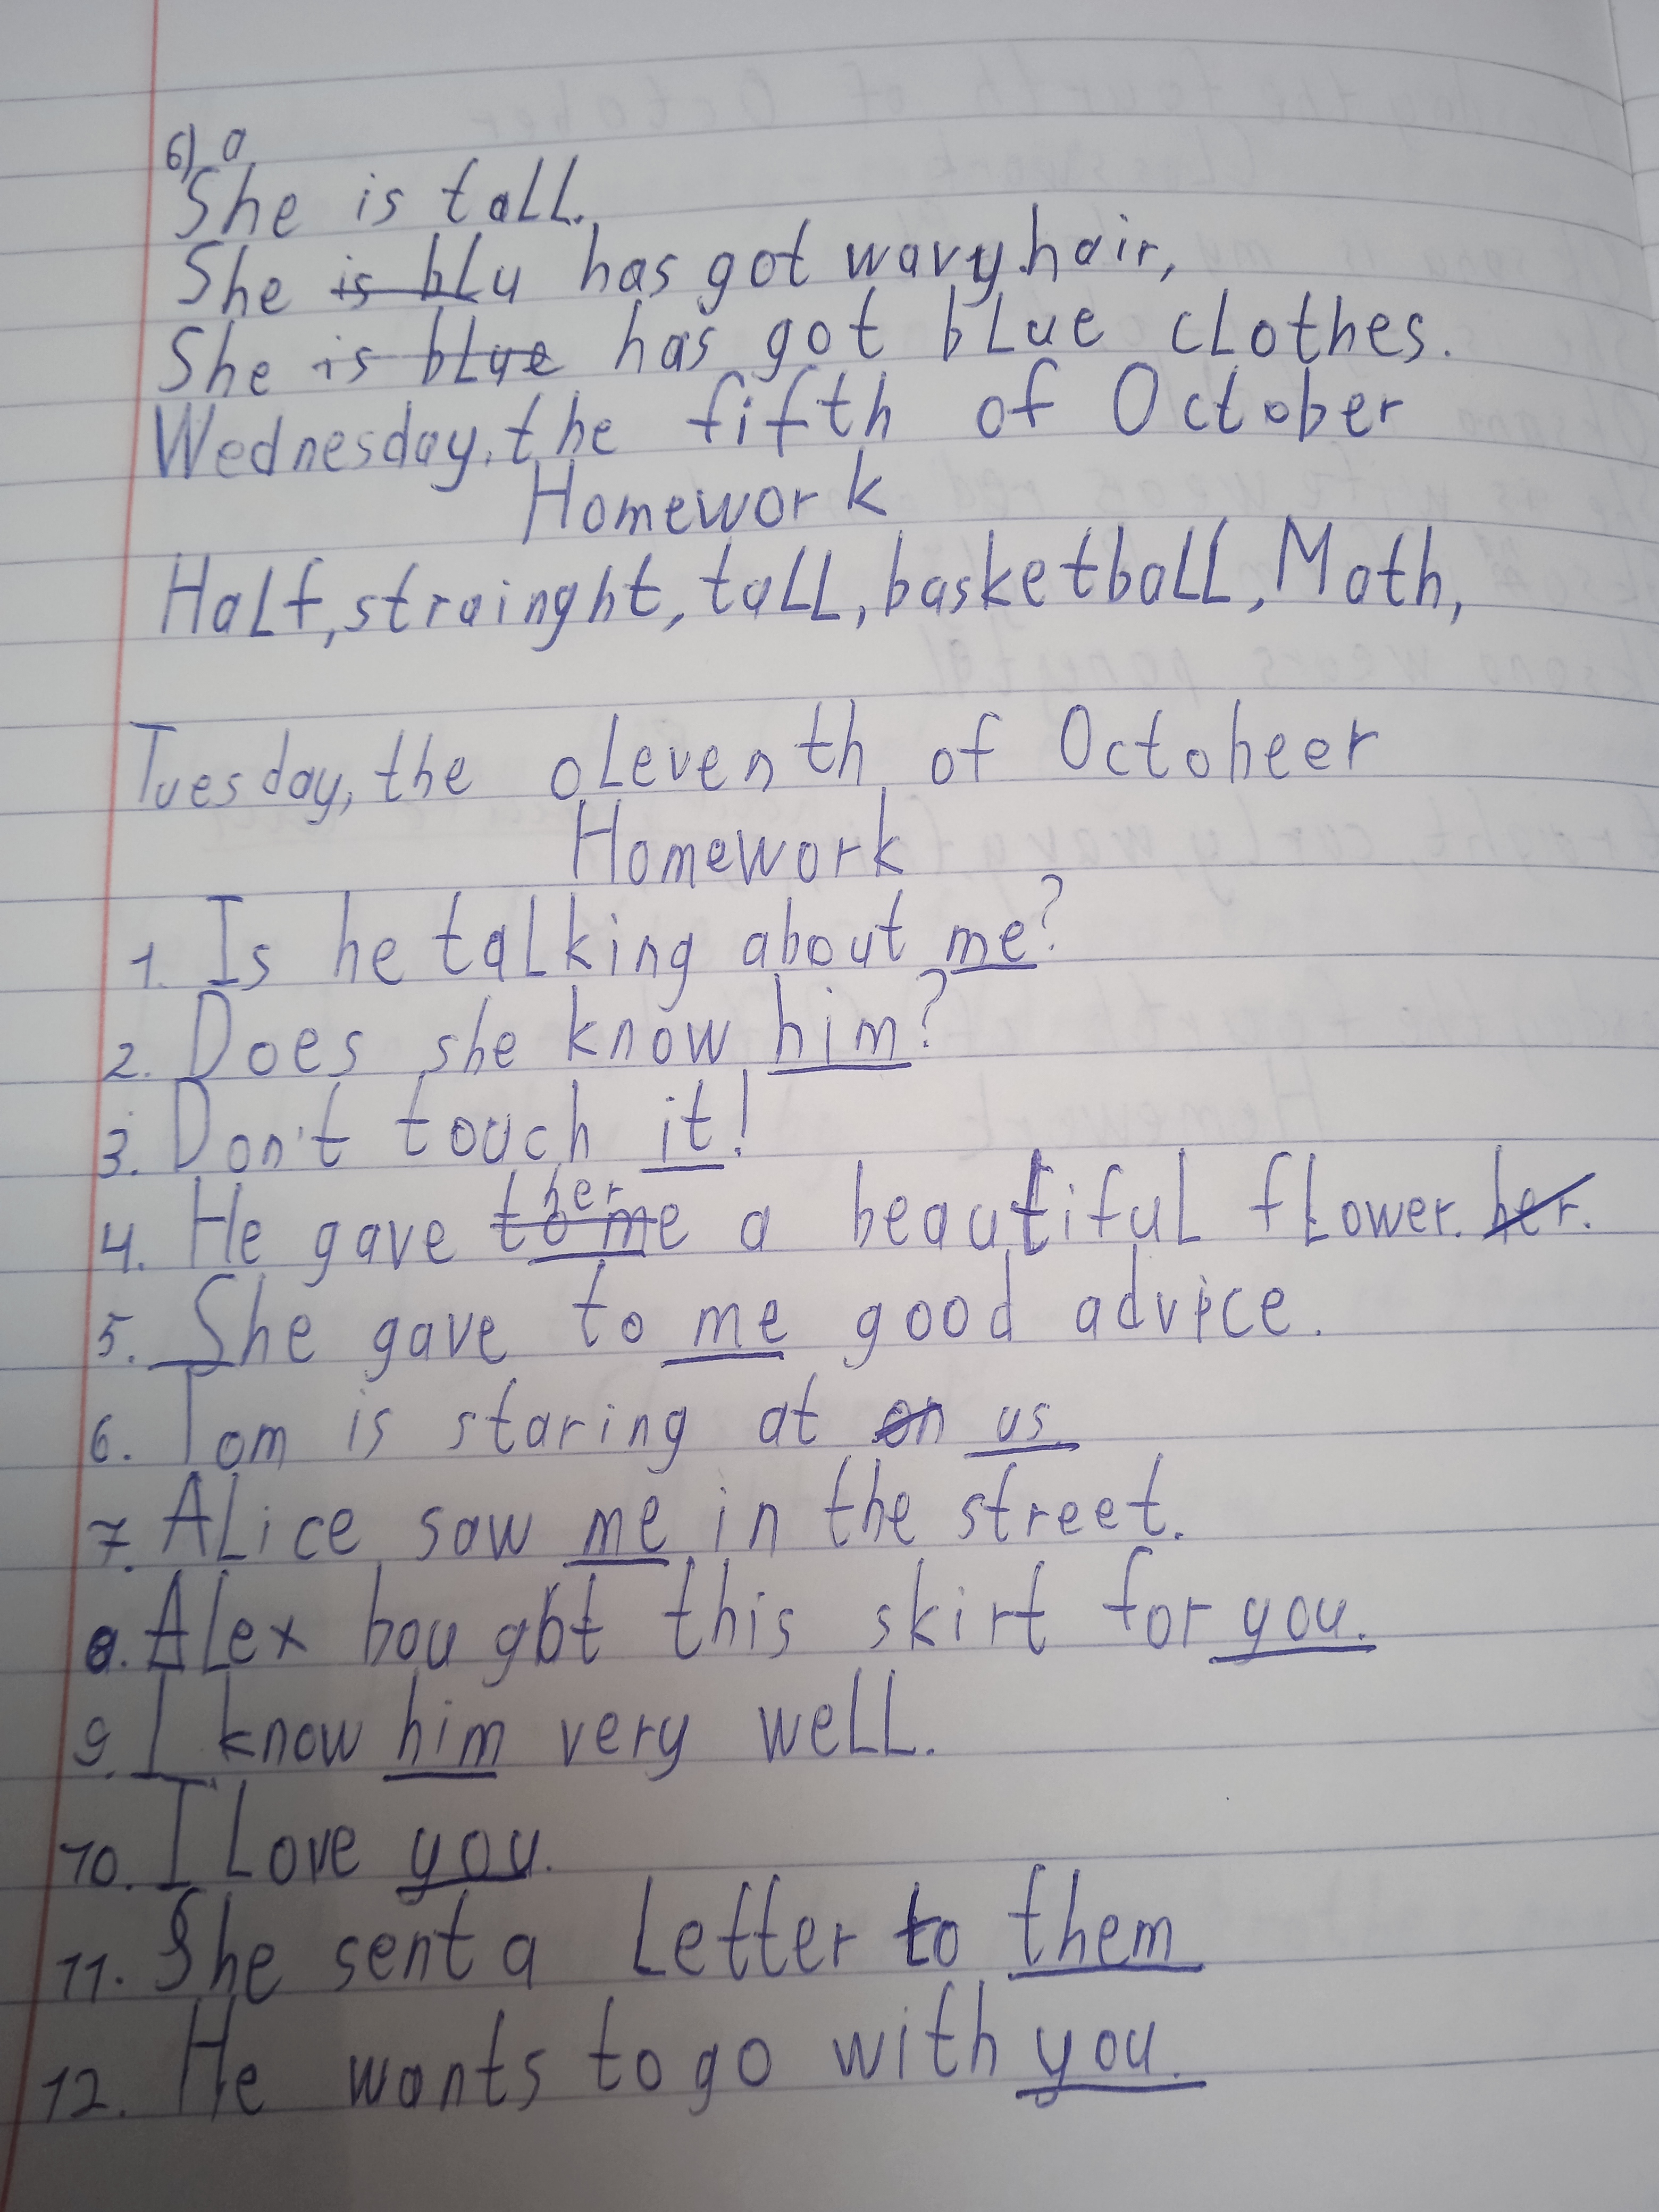 6) a
She is tall.
She is blu has got wavy hair,
She is blue has got blue clothes.
Wednesday, the fifth of October
Homework
Half, strainght, tall, basketball, Math,
Tuesday, the oleventh of Octobeer
Homework
1. Is he talking about me?
2. Does she know him?
3. Don't touch it!
4. He gave to me her a beautiful flower. her.
5. She gave to me good advice.
6. Tom is staring at on us.
7. Alice saw me in the street.
8. Alex bought this skirt for you.
9. I know him very well.
10. I Love you.
11. She sent a Letter to them
12. He wants to go with you.